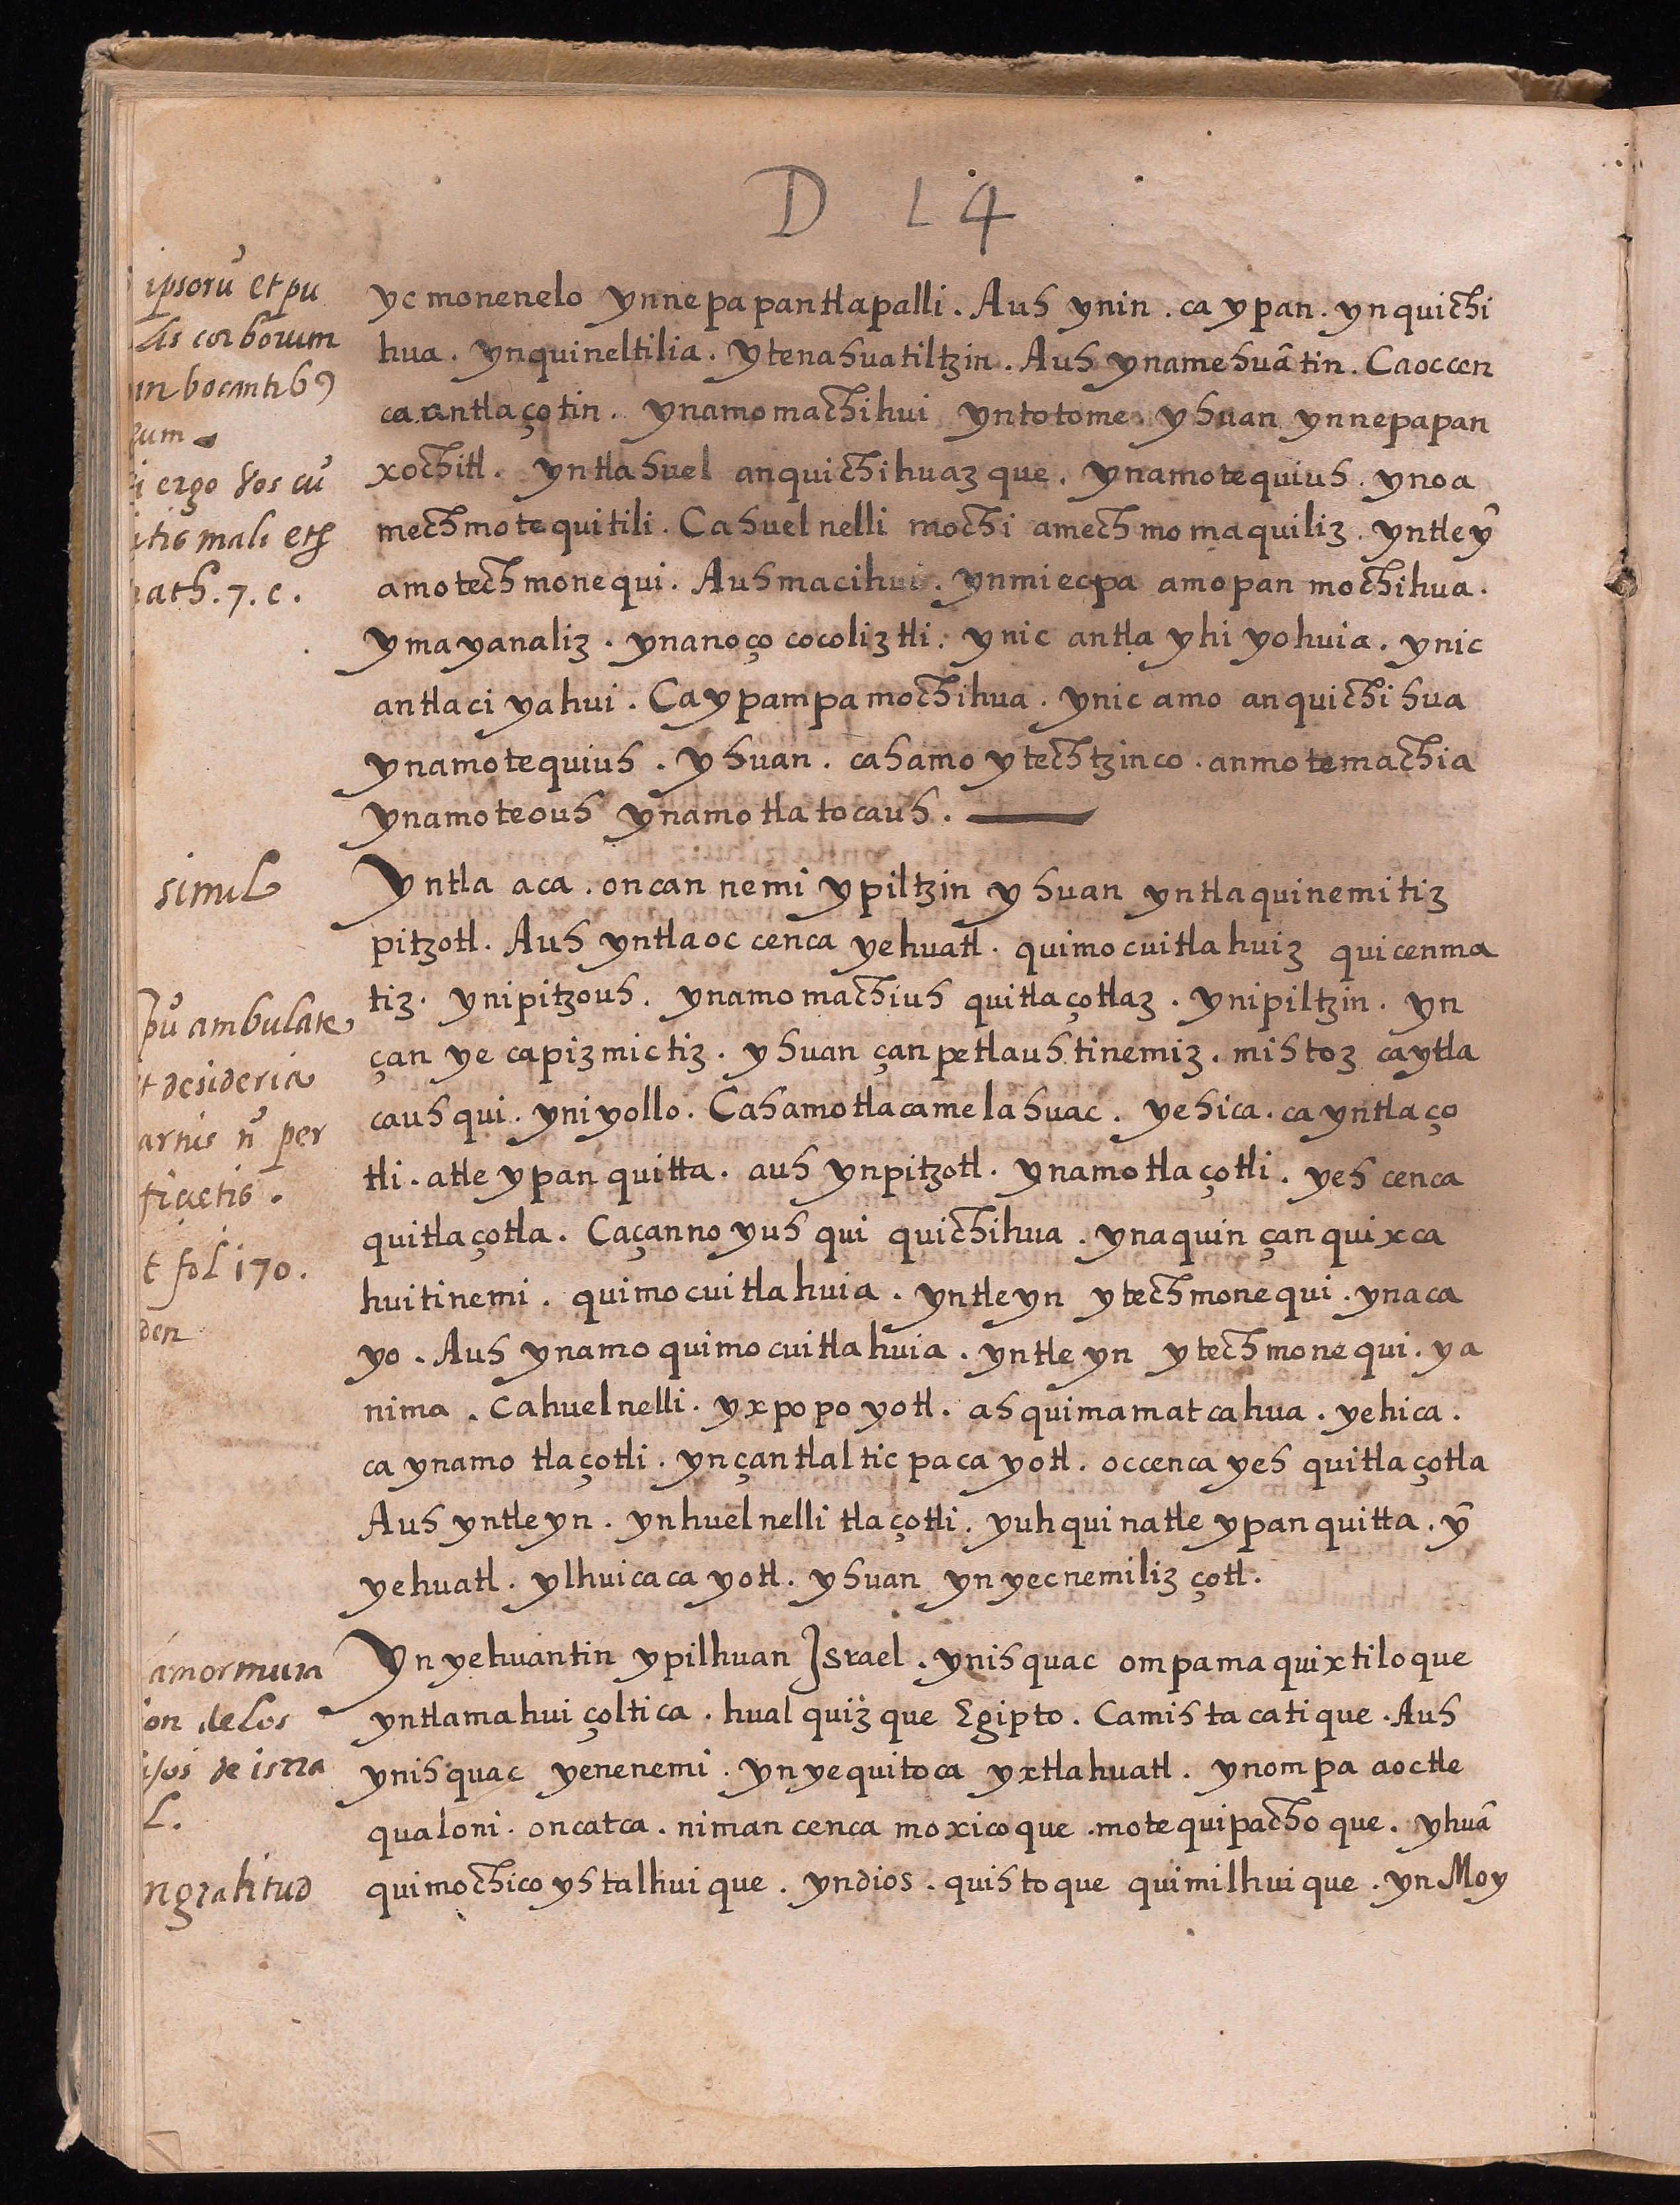 D L 4
ipsorũ et pu
lis corborum
un bocantibꝰ
eum
i ergo vos cũ
itis mali et
ath. 7. c.
simil
pũ ambulate
t desideria
arnis nõ per
ficietis.
t fol 170.
den
amormura
on delos
ijos de isrra
L.
ngratitud
yc monenelo ynnepapantlapalli. Auh ynin. ca ypan. ynquichi
hua. ynquineltilia. ytenahuatiltzin. Auh ynamehuãtin. Caoccen
ca antlaçotin. ynamomachihui yntotome yhuan ynnepapan
xochitl. yntlahuel anquichihuazque. ynamotequiuh. ynoa
mechmotequitili. Cahuel nelli mochi amechmomaquiliz. yntleỹ
amotechmonequi. Auhmacihui. ynmiecpa amopan mochihua.
ymayanaliz. ynanoço cocoliztli. ynic antla yhiyohuia. ynic
antlaciyahui. Caypampa mochihua. ynic amo anquichihua
ynamotequiuh. yhuan. cahamo ytechtzinco. anmotemachia
ynamoteouh ynamotlatocauh.
Yntla aca. oncan nemi ypiltzin yhuan yntlaquinemitiz
pitzotl. Auh yntlaoc cenca yehuatl. quimocuitlahuiz quicenma
tiz. ynipitzouh. ynamomachiuh quitlaçotlaz. ynipiltzin. yn
çan ye capizmictiz. yhuan çanpetlauhtinemiz. mihtoz caytla
cauhqui. yniyollo. Cahamotlacamelahuac. yehica. ca yntlaço
tli. atle ypan quitta. auh ynpitzotl. ynamotlaçotli. yeh cenca
quitlaçotla. Caçanno yuhqui quichihua. ynaquin çanquixca
huitinemi. quimocuitlahuia. yntleyn ytechmonequi. ynaca
yo. Auh ynamo quimocuitlahuia. yntleyn ytechmonequi. ya
nima. Cahuelnelli. yxpopoyotl. ahquimamatcahua. yehica.
ca ynamo tlaçotli. ynçantlalticpacayotl. occenca yeh quitlaçotla
Auh yntleyn. ynhuelnelli tlaçotli. yuhquinatle ypanquitta. ỹ
yehuatl. ylhuicacayotl. yhuan ynyecnemilizçotl.
Yn yehuantin ypilhuan Israel. ynihquac ompamaquixtiloque
yntlamahuiçoltica. hualquizque Egipto. Camihtacatique. Auh
ynihquac yenenemi. ynyequitoca yxtlahuatl. ynompa aoctle
qualoni. oncatca. niman cenca moxicoque. motequipachoque. yhuã
quimochicoyhtalhuique. yndios. quihtoque quimilhuique. yn Moy